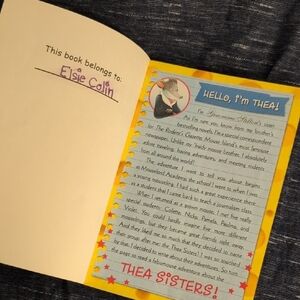 This book belongs to:
Elsie Colin
HELLO, I'M THEA!
I'm Geronimo Stilton's sister.
As I'm sure you know from my brother's
bestselling novels, I'm a special correspondent
for The Rodent's Gazette, Mouse Island's most famouse
newspaper. Unlike my 'fraidy mouse brother, I absolutely
adore traveling, having adventures, and meeting rodents
from all around the world!
The adventure I want to tell you about begins
at Mouseford Academy, the school I went to when I was
a young mouseling. I had such a great experience there
as a student that I came back to teach a journalism class.
When I returned as a grown mouse, I met five really
special students: Colette, Nicky, Pamela, Paulina, and
Violet. You could hardly imagine five more different
mouselings, but they became great friends right away.
And they liked me so much that they decided to name
their group after me: the Thea Sisters! I was so touched
by that, I decided to write about their adventures. So turn
the page to read a fabumouse adventure about the
THEA SISTERS!